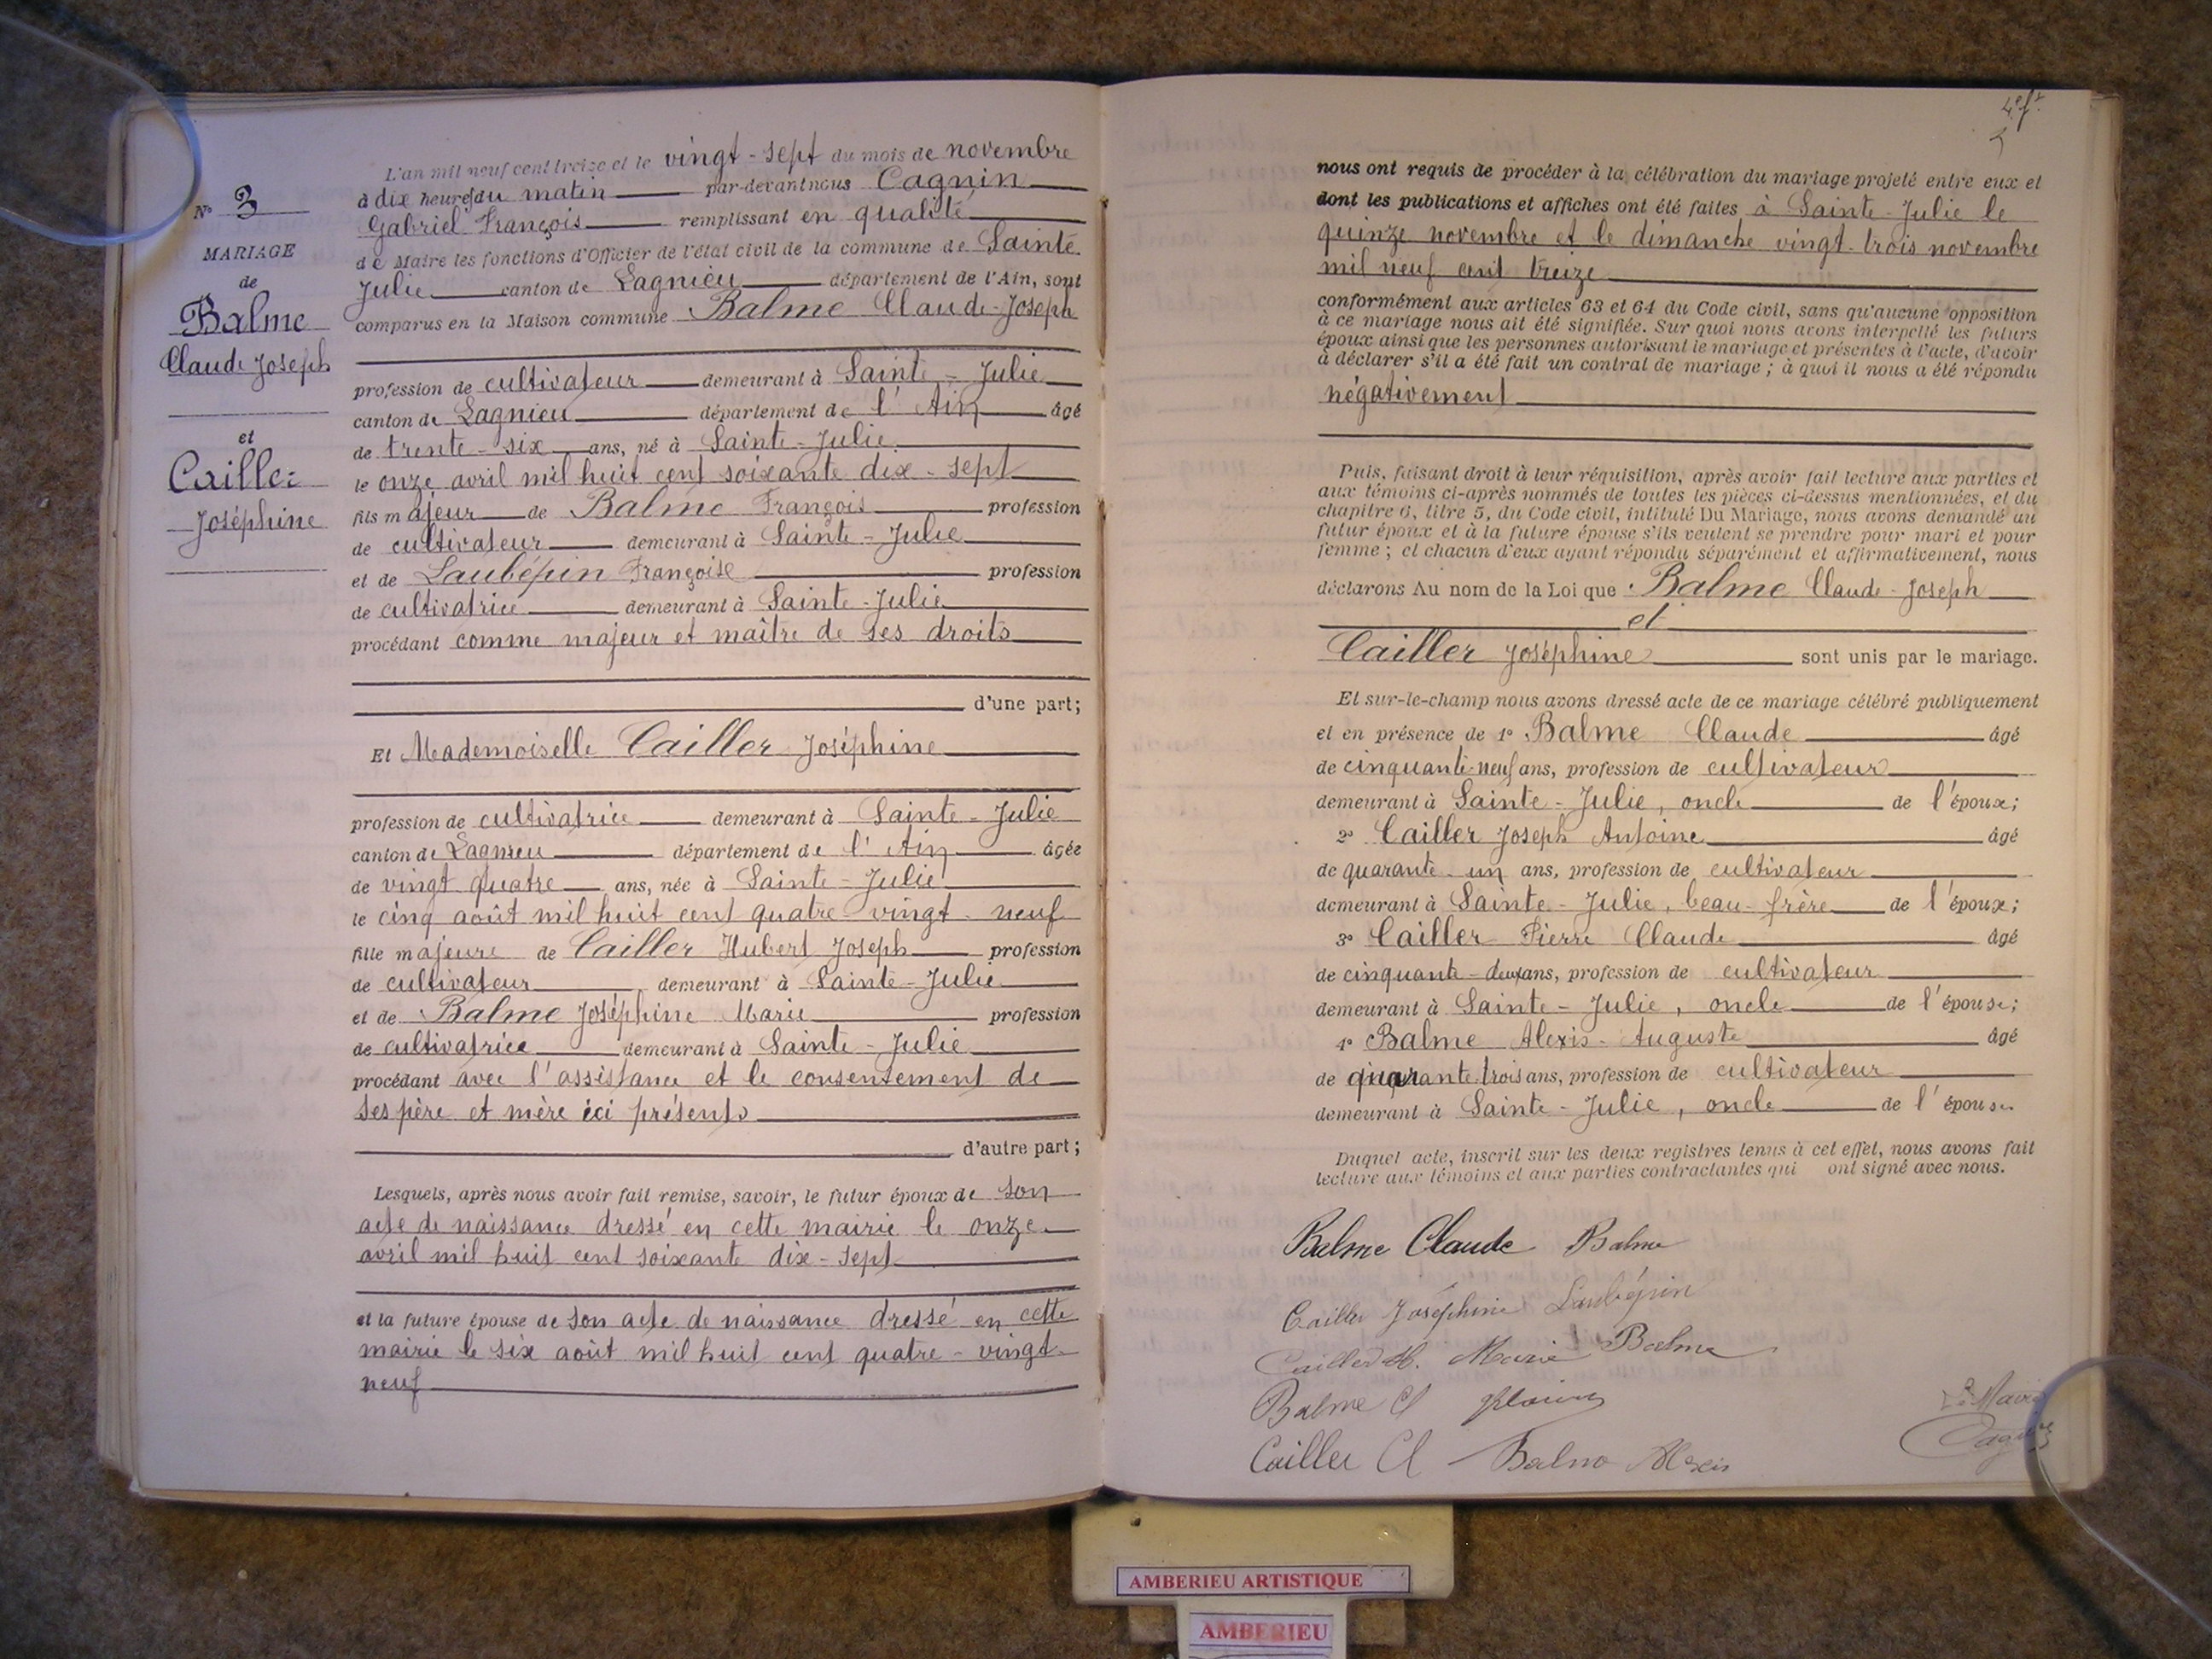 N° 3
MARIAGE
de
Balme
Claude Joseph
et
Cailler
Joséphine
L'an mil neuf cent treize et le vingt-sept du mois de novembre
à dix heures du matin par-devant nous Cagnin
Gabriel François remplissant en qualité
de Maire les fonctions d'Officier de l'état civil de la commune de Sainte
Julie canton de Lagnieu département de l'Ain, sont
comparus en la Maison commune Balme Claude-Joseph
profession de cultivateur demeurant à Sainte-Julie
canton de Lagnieu département de l'Ain âgé
de trente-six ans, né à Sainte-Julie
le onze avril mil huit cent soixante dix-sept
fils majeur de Balme François profession
de cultivateur demeurant à Sainte-Julie
et de Laubépin Françoise profession
de cultivatrice demeurant à Sainte-Julie
procédant comme majeur et maître de ses droits
d'une part;
Et Mademoiselle Cailler Joséphine
profession de cultivatrice demeurant à Sainte-Julie
canton de Lagnieu département de l'Ain âgée
de vingt quatre ans, née à Sainte-Julie
le cinq août mil huit cent quatre-vingt-neuf
fille majeure de Cailler Hubert Joseph profession
de cultivateur demeurant à Sainte-Julie
et de Balme Joséphine Marie profession
de cultivatrice demeurant à Sainte-Julie
procédant avec l'assistance et le consentement de
ses père et mère ici présents
d'autre part;
Lesquels, après nous avoir fait remise, savoir, le futur époux de son
acte de naissance dressé en cette mairie le onze
avril mil huit cent soixante dix-sept
et la future épouse de son acte de naissance dressé en cette
mairie le six août mil huit cent quatre-vingt-
neuf
nous ont requis de procéder à la célébration du mariage projeté entre eux et
dont les publications et affiches ont été faites à Sainte-Julie le
quinze novembre et le dimanche vingt-trois novembre
mil neuf cent treize
conformément aux articles 63 et 64 du Code civil, sans qu'aucune opposition
à ce mariage nous ait été signifiée. Sur quoi nous avons interpellé les futurs
époux ainsi que les personnes autorisant le mariage et présentes à l'acte, d'avoir
à déclarer s'il a été fait un contrat de mariage; à quoi il nous a été répondu
négativement
Puis, faisant droit à leur réquisition, après avoir fait lecture aux parties et
aux témoins ci-après nommés de toutes les pièces ci-dessus mentionnées, et du
chapitre 6, titre 5, du Code civil, intitulé Du Mariage, nous avons demandé au
futur époux et à la future épouse s'ils veulent se prendre pour mari et pour
femme; et chacun d'eux ayant répondu séparément et affirmativement, nous
déclarons Au nom de la Loi que Balme Claude-Joseph
et
Cailler Joséphine sont unis par le mariage.
Et sur-le-champ nous avons dressé acte de ce mariage célébré publiquement
et en présence de 1° Balme Claude âgé
de cinquante-neuf ans, profession de cultivateur
demeurant à Sainte-Julie, oncle de l'époux;
2° Cailler Joseph Antoine âgé
de quarante-un ans, profession de cultivateur
demeurant à Sainte-Julie, beau-frère de l'époux;
3° Cailler Pierre Claude âgé
de cinquante-deux ans, profession de cultivateur
demeurant à Sainte-Julie, oncle de l'épouse;
4° Balme Alexis-Auguste âgé
de quarante-trois ans, profession de cultivateur
demeurant à Sainte-Julie, oncle de l'épouse
Duquel acte, inscrit sur les deux registres tenus à cet effet, nous avons fait
lecture aux témoins et aux parties contractantes qui ont signé avec nous.
Balme Claude Balme
Cailler Joséphine Laubépin
Cailler H. Marie Balme
Balme Cl
Cailler Cl Balme Alexis
Le Maire
Cagnin
AMBERIEU ARTISTIQUE
AMBERIEU